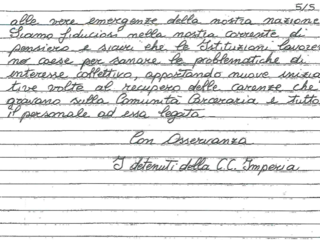 5/5
alle vere emergenze della nostra nazione
Siamo fiduciosi nella nostra corrente di
pensiero e sicuri che le Istituzioni lavore
per sanare le problematiche di
interesse collettivo, apportando nuove inizia
tive volte al recupero delle carenze che
gravano sulla Comunità Carceraria e tutto
il personale ad essa legata.
Con Osservanza
I detenuti della C.C. Imperia